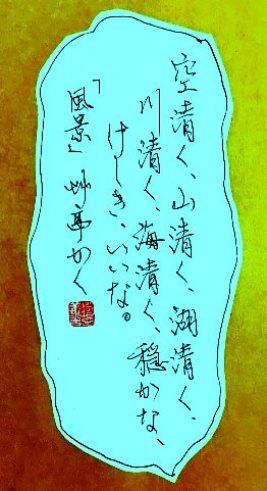 空清く、山清く、湖清く、
川清く、海清く、穏かな、
けしき、いいな。
「風景」 艸亭かく